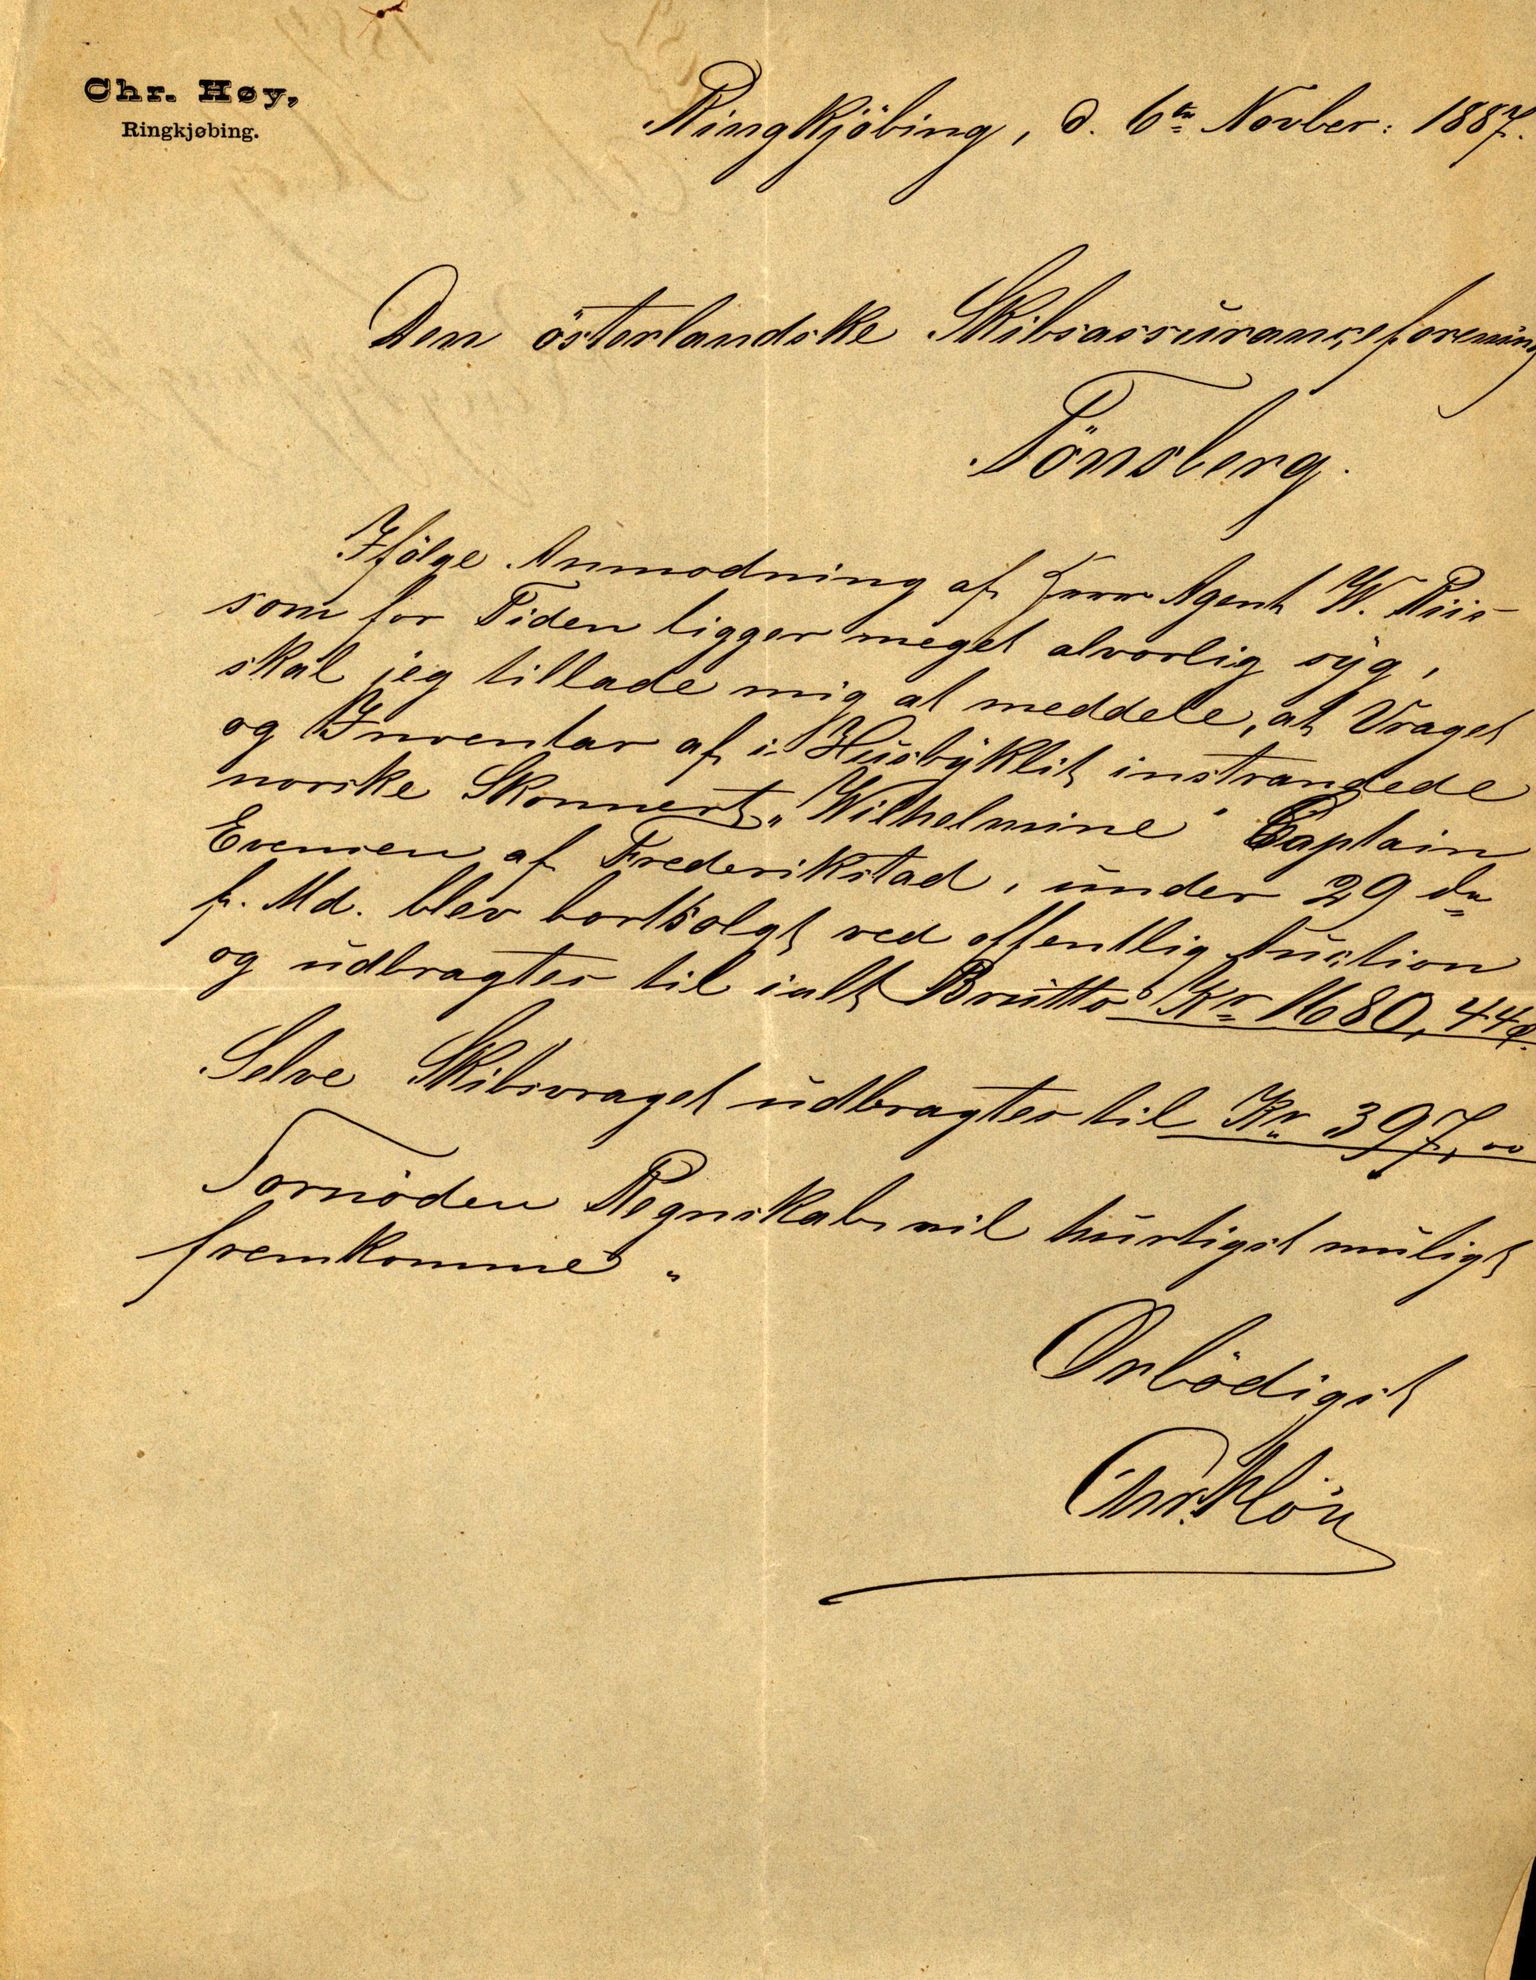 Chr. Høy,
Ringkjøbing.
Ringkjöbing, d. 6te Novber: 1887.
Den österlandske Skibsassuranceforening
Tönsberg.
Ifölge Anmodning af Herr Agent W. Riis
som for Tiden ligger meget alvorlig syg,
skal jeg tillade mig at meddele, at Vraget
og Inventar af i Husbyklit instrandede
norske Skonnert „Wilhelmine" Captain
Evensen af Frederikstad, under 29 dn
f. Md. blev bortsolgt ved offentlig Auction
og udbragtes til ialt Brutto Kr 1680,44 Ø.
Selve Skibsvraget udbragtes til Kr 397,00
Fornöden Regnskab vil hurtigst muligt
fremkomme.
Ærbödigst
Chr. Höy